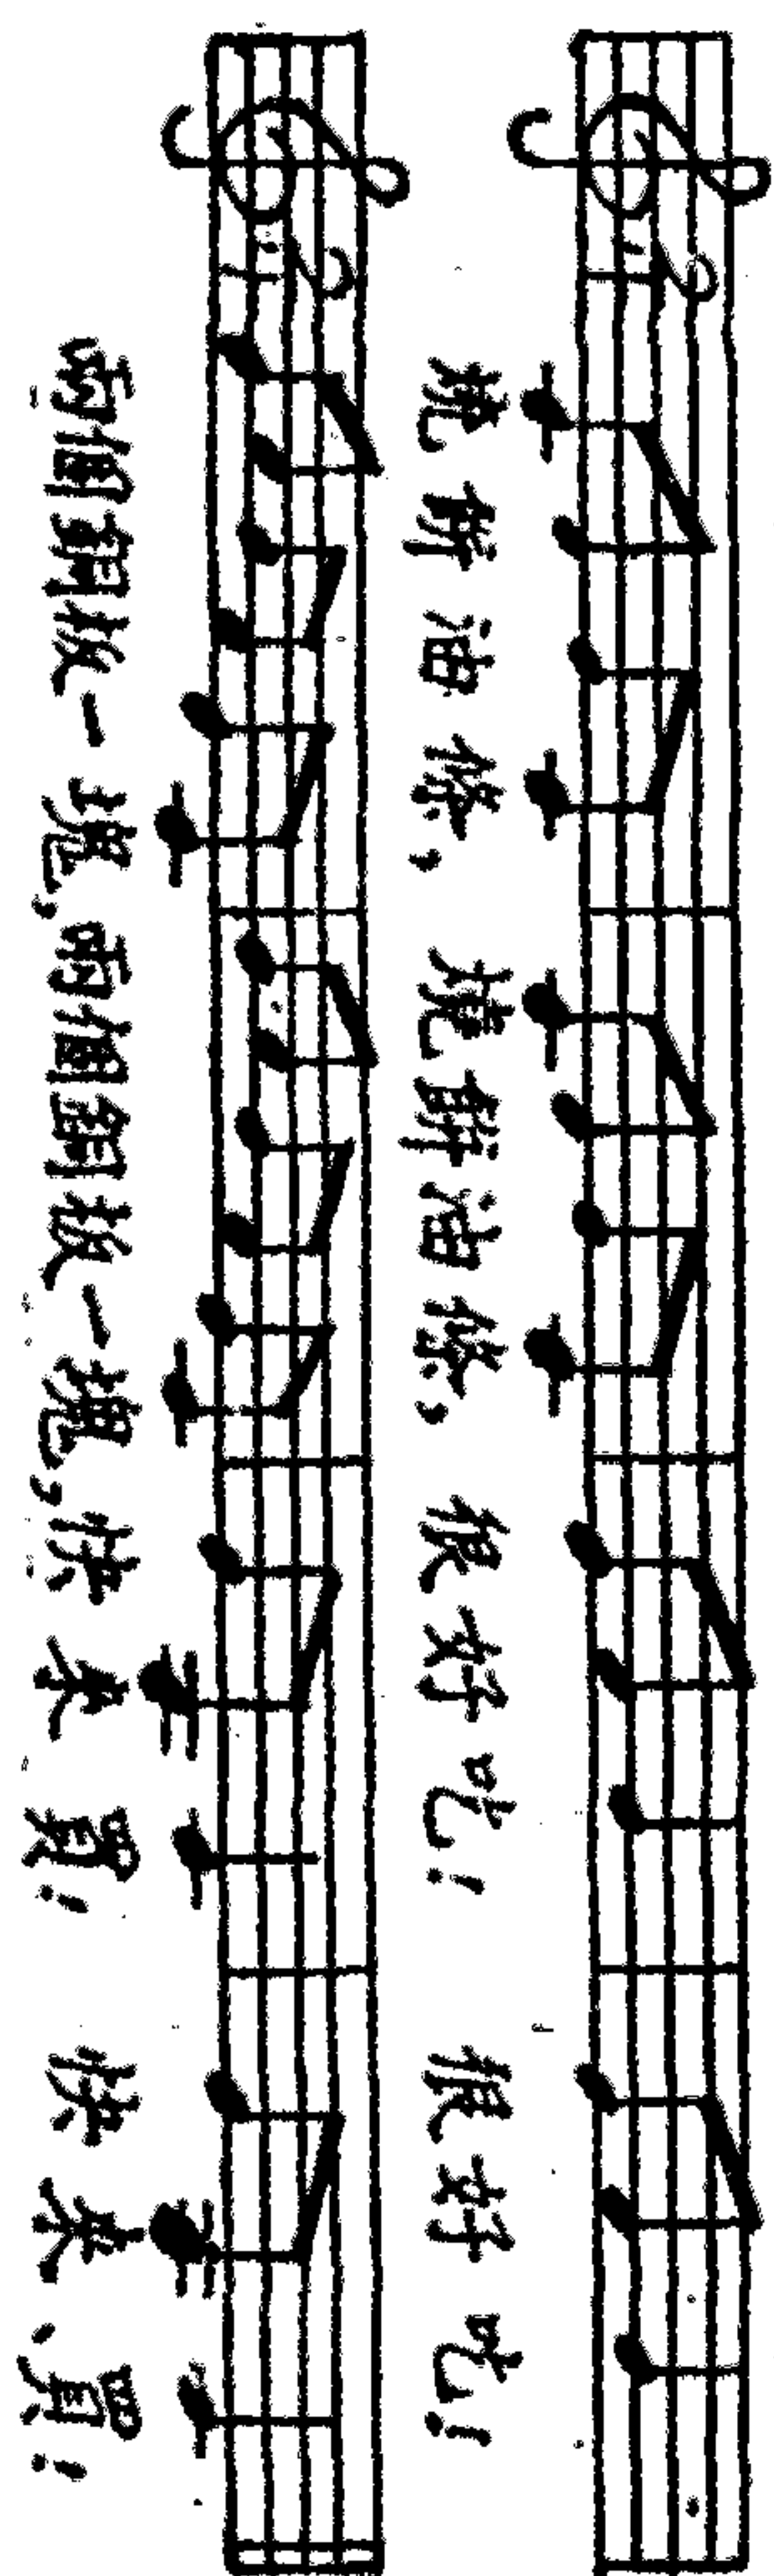 燒餅油條,燒餅油條,很好吃!很好吃!
兩個銅板一塊,兩個銅板一塊,快來買!快來買!